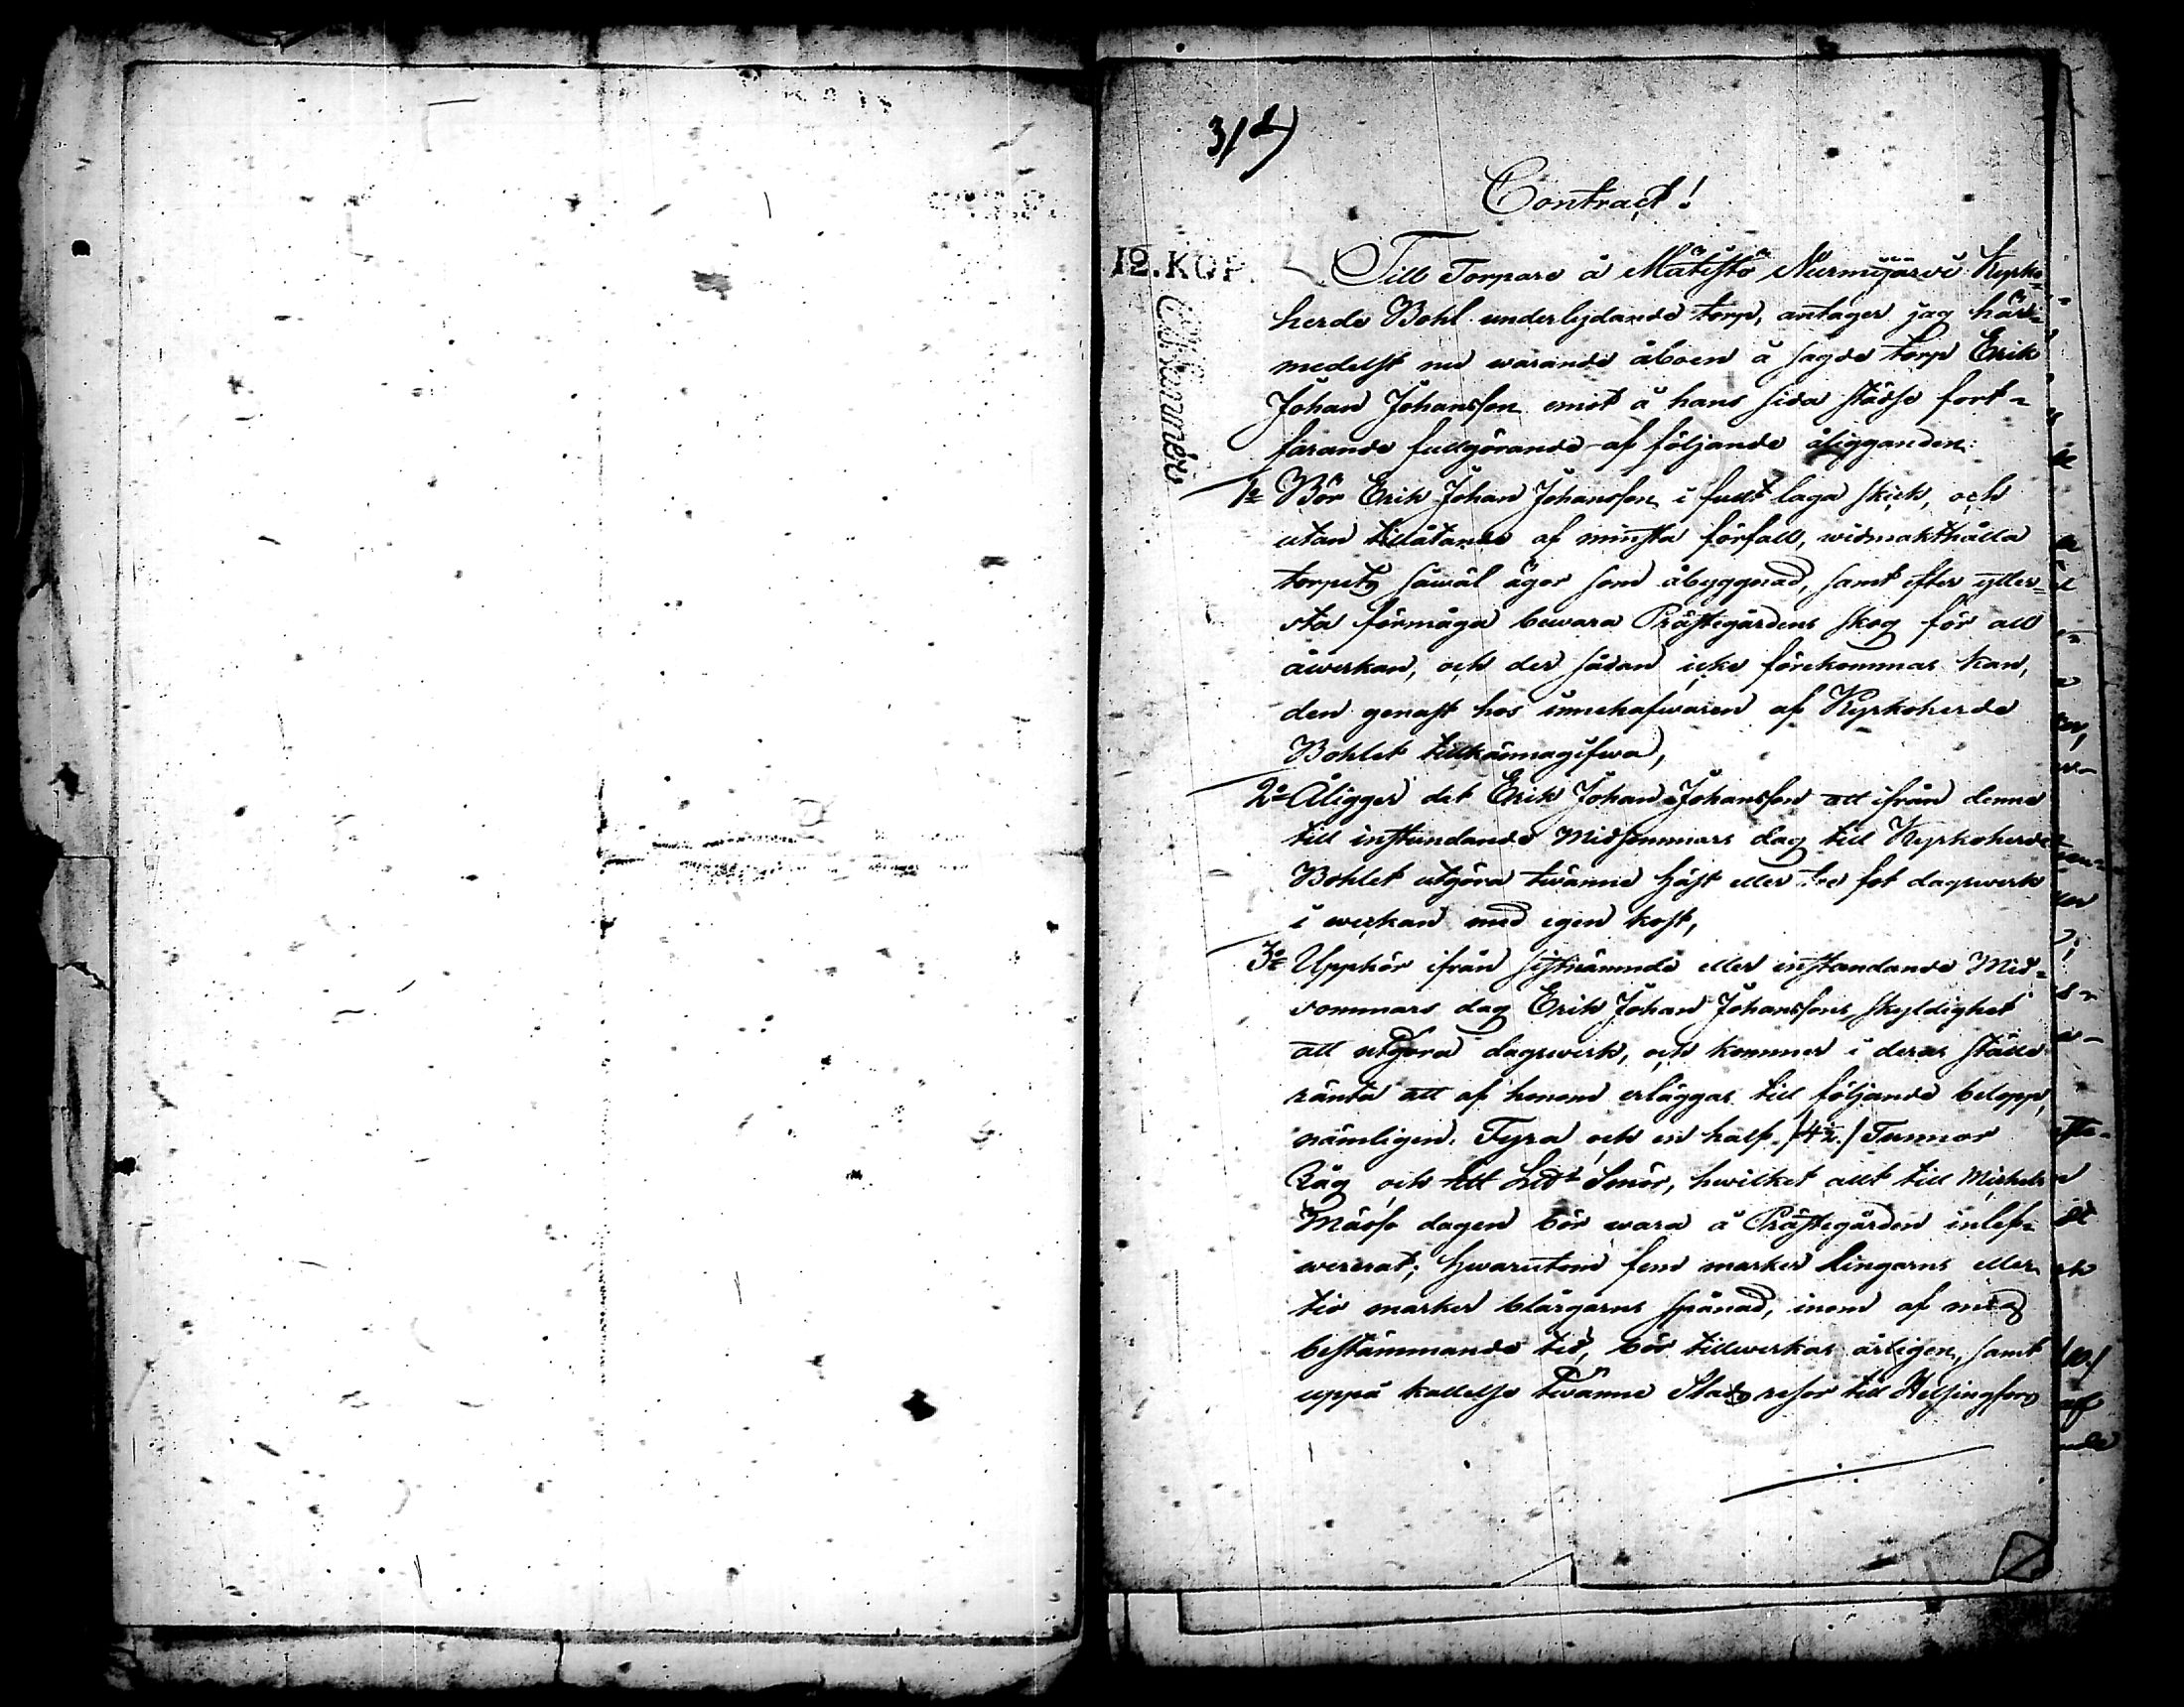 3/2)
Contract!
12. KOP.
Till Torpare å Mätistö Nurmijärvi Kyrko
herde Bohl underlydande torp, antager jag här-
medelst nu warande åboen å sagde torp Erik
Johan Johansson emot å hans sida städse fort-
farande fullgörande af följande åligganden:
1o Bör Erik Johan Johansson i fullt laga skick, och
utan tillåtande af minsta förfall, widmakthålla
torpets såwäl ägor som åbyggnad, samt efter ytter-
sta förmåga bewara Prästegårdens skog för all
åwerkan, och der sådan icke förekommas kan,
den genast hos innehafwaren af Kyrkoherde
Bohlet tillkännagifwa,
2o Åligger det Erik Johan Johansson att ifrån denna
till instundande Midsommars dag till Kyrkoherde
Bohlet utgöra twänne häst eller tre fot dagswerk
i weckan med egen kost,
3o Upphör ifrån sistnämnde eller instundande Mid-
sommars dag Erik Johan Johanssons skyldighet
att utgöra dagswerk, och kommer i deras ställe
ränta att af honom erläggas till följande belopp,
nämligen. Fyra och en half /4½./ Tunnor
Råg och Ett Lisd Smör, hwilket allt till Michels
Mässo dagen bör wara å Prästegården inlef-
wererat; hwarutom fem marker lingarns eller
tio marker blårgarns spånad, inom af mig
bestämmande tid, bör tillwerkas årligen, samt
uppå kallelse twänne Stads resor till Helsingfors